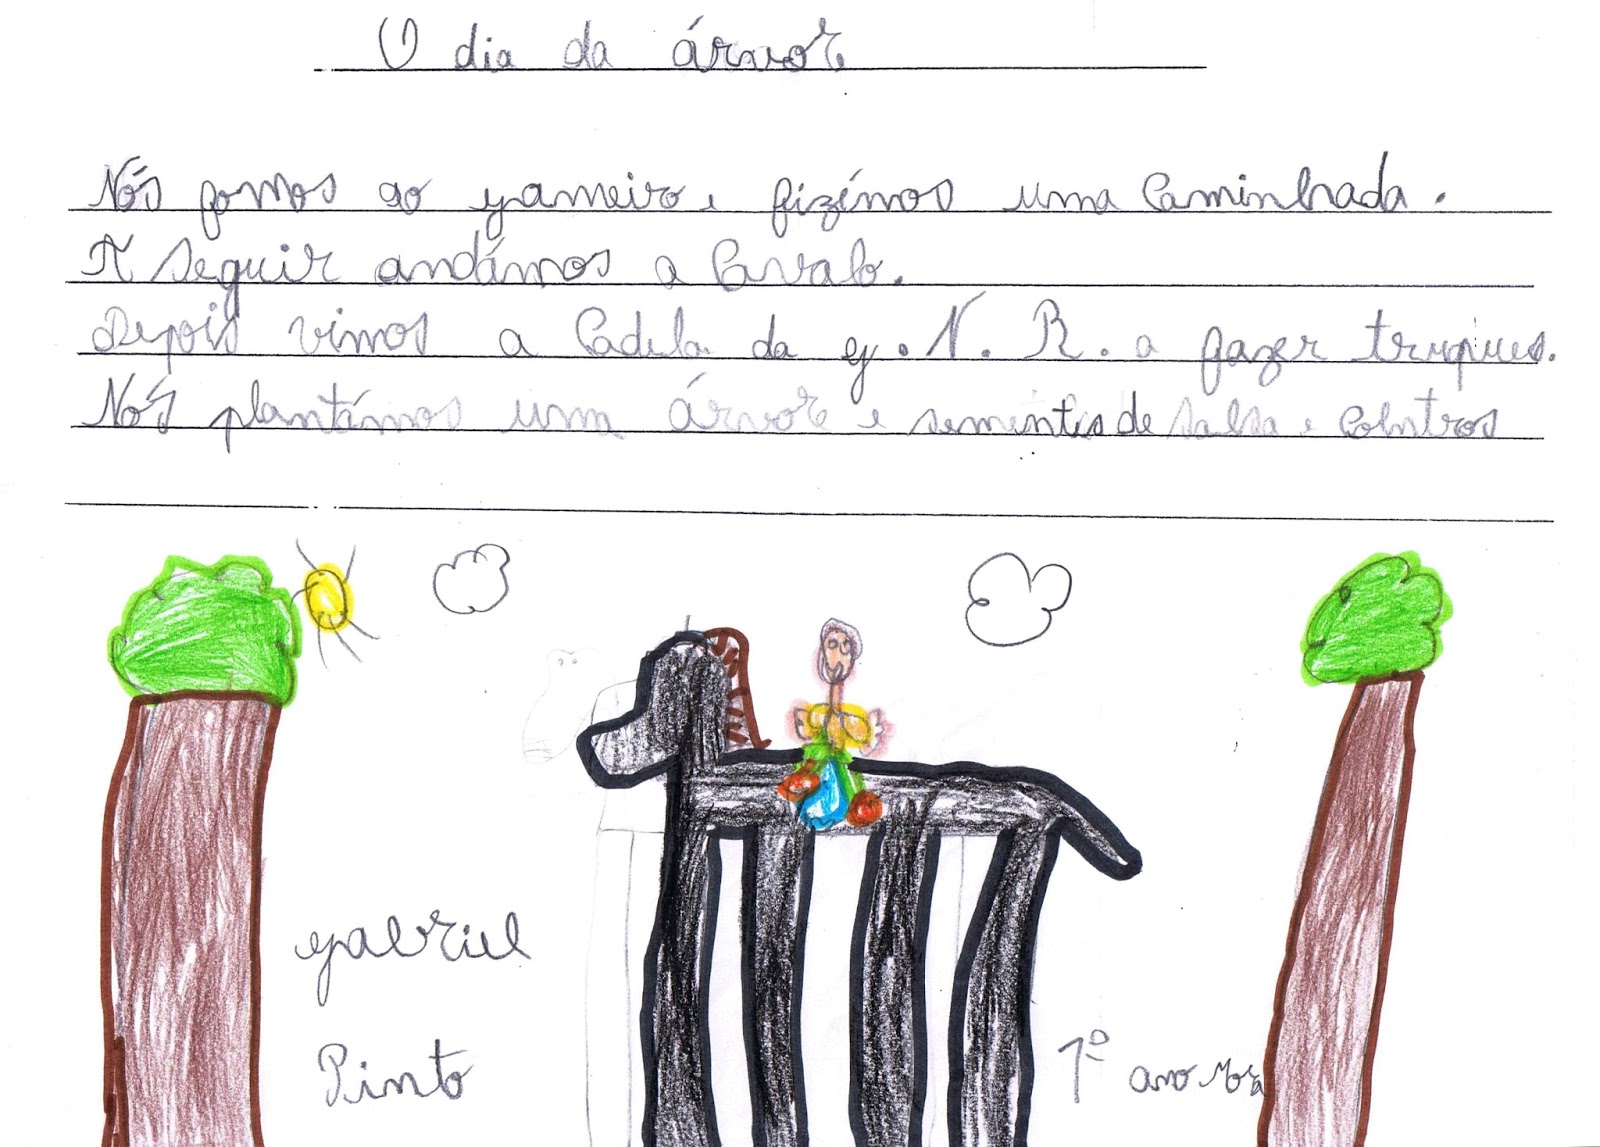 O dia da árvore
Nós fomos ao gameiro e fizémos uma Caminhada.
A seguir andámos a Cavalo.
Depois vimos a Cadela da G.N.R. a fazer truques.
Nós plantámos uma árvore e sementes de salsa e Coentros
Gabriel
Pinto
1º ano Mora